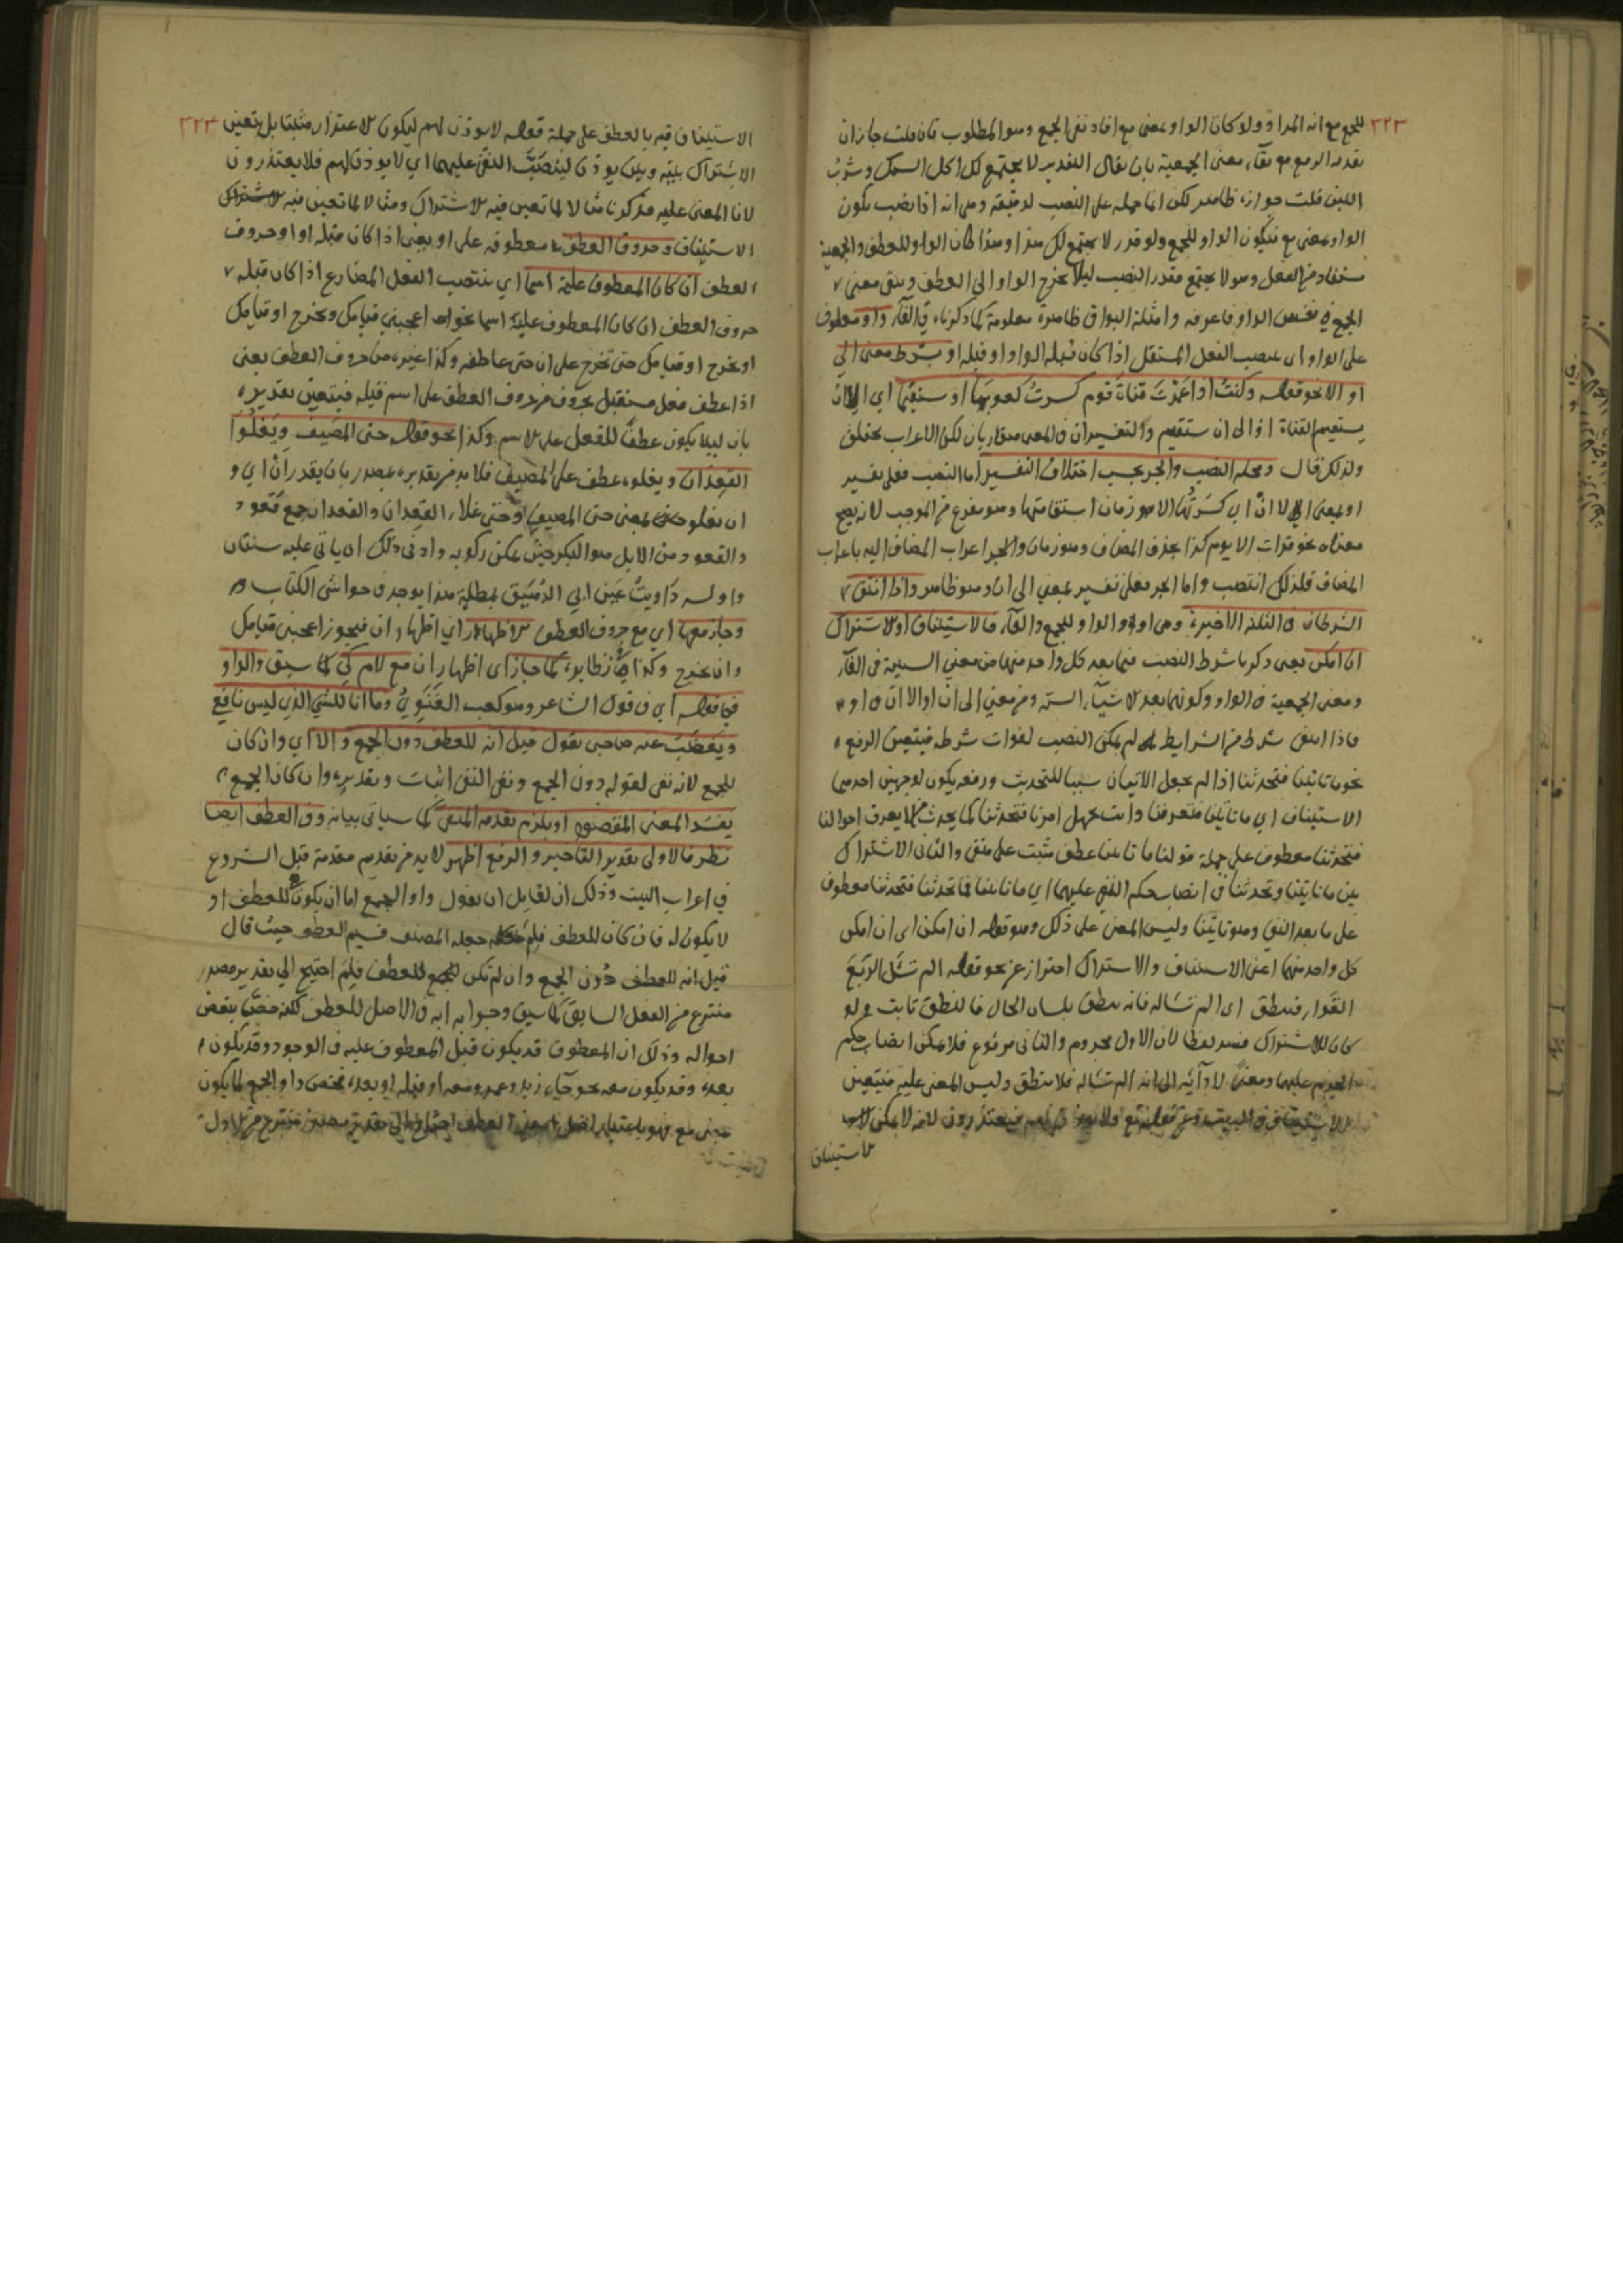 ٣٢٣ للجمع مع انه المراد ولو كان الواو بمعنى مع افاد نفى الجمع وهو المطلوب فان قلت جاز ان
يقدر الرفع مع بقاء معنى الجمعية بان يقال التقدير لا يجتمع لك اكل السمك وشرب
اللبن قلت جوازه ظاهر لكن انما حمله على النصب لدقيقة وهى انه اذا نصب يكون
الواو بمعنى مع فيكون الواو للجمع ولو قدر لا يجتمع لك هذا وهذا كان الواو للعطف والجمعية
مستفاد من الفعل وهو لا يجتمع فقدر النصب ليلا يخرج الواو الى العطف ويبقى معنى
الجمع فى نفس الواو فاعرفه وامثلة البواقى ظاهرة معلومة كما ذكرناه فى الفآء واو معطوف
على الواو اى ينصب الفعل المستقبل اذا كان قبله الواو او قبله او بشرط معنى الى
او الا نحو قوله وكنت اذا غمزت قناة قوم كسرت كعوبها او تستقيما اى الا ان
يستقيم القناة او الى ان تستقيم والتفسيران فى المعنى متقاربان لكن الاعراب مختلف
ولذلك قال ومحله النصب والجر بحسب اختلاف التفسير اما النصب فعلى تفسير
او بمعنى الا ان اى كسرتها الا زمان استقامتها وهو مفرغ من الموجب لانه يصح
معناه نحو قرات الا يوم كذا بحذف المضاف وهو زمان والجر اعراب المضاف اليه باعراب
المضاف فلذلك انتصب واما الجر فعلى تفسير بمعنى الى ان وهو ظاهر واذا انتفى
الشرطان فى الثلثة الاخيرة وهى او والواو للجمع والفآء فالاستيناف او الاشتراك
ان امكن يعنى ذكرنا شرط النصب فيما بعد كل واحد منها من معنى السببية فى الفآء
ومعنى الجمعية فى الواو وكونهما بعد الاشيآء الستة ومن معنى الى ان او الا ان فى او
فاذا انتفى شرط من الشرايط لم يمكن النصب لفوات شرطه فيتعين الرفع
نحو ما تاتينا فتحدثنا اذا لم يجعل الاتيان سببا للتحديث ورفعه يكون لوجهين احدهما
الاستيناف اى ما تاتينا فتعرفنا وانت تجهل امرنا فتحدثنا كما يحدث من لا يعرف احوالنا
فتحدثنا معطوف على جملة قولنا ما تاتينا عطف مثبت على منفى والثانى الاشتراك
بين ما تاتينا وتحدثنا فى انصباب حكم النفى عليهما اى ما تاتينا فما تحدثنا فتحدثنا معطوف
على ما بعد النفى وهو تاتينا وليس المعنى على ذلك وهو قوله ان امكن اى ان امكن
كل واحد منهما اعنى الاستيناف والاشتراك احتراز عن نحو قوله الم تسئل الربع
القواء فينطق اى الم تساله فانه ينطق بلسان الحال فالنطق ثابت ولو
كان للاشتراك فسد لفظا لان الاول مجزوم والثانى مرفوع فلا يمكن انصباب حكم
الجزم عليهما ومعنى لادآئه الى انه الم تساله فلا ينطق وليس المعنى عليه فيتعين
الاستيناف فى البيت وعن قوله تع ولا يوذن لهم فيعتذرون لانه لا يمكن
الاستيناف
الاستيناف فيه بالعطف على جملة قوله لا يوذن لهم ليكون الاعتذار مثبتا بل يتعين ٣٢٣
الاشتراك بينه وبين يوذن لينصب النفى عليهما اى لا يوذن لهم فلا يعتذرون
لان المعنى عليه فذكرنا مثالا لما تعين فيه الاشتراك ومثالا لما تعين فيه
الاستيناف وحروف العطف معطوفه على او يعنى اذا كان قبله او او حروف
العطف ان كان المعطوف عليه اسما اى ينتصب الفعل المضارع اذا كان قبله
حروف العطف ان كان المعطوف عليه اسما نحو اعجبنى قيامك وتخرج او قيامك
او تخرج او قيامك حتى تخرج على ان حتى عاطفه وكذا غيره من حروف العطف يعنى
اذا عطف فعل مستقبل بحروف من حروف العطف على اسم قبله فيتعين تقديره
بان ليلا يكون عطفا للفعل على الاسم وكذا نحو قوله حتى المصيف ويغلوا
القعدان ويغلوه عطف على المصيف فلا بد من تقديره بمصدر بان يقدر ان اى و
ان يغلو بمعنى حتى المصيف وحتى غلاء القعدان والقعدان جمع قعود
والقعود من الابل هو البكر حين يمكن ركوبه وادنى ذلك ان ياتى عليه سنتان
واوله داويت عين ابى الدهيق بمطله هذا يوجد فى حواشى الكتاب
وجاز معها اى مع حروف العطف الاظهار اى اظهار ان فيجوز اعجبنى قيامك
وان تخرج وكذا فى نظايره كما جاز اى اظهار ان مع لام كى كما سبق والواو
فى قوله اى فى قول الشاعر وهو كعب الغنوى وما انا للشئ الذى ليس نافعى
ويغضب عنه صاحبى بقول قيل انه للعطف دون الجمع والا اى وان كان
للجمع لانه نفى لقوله دون الجمع ونفى النفى اثبات وتقديره وان كان الجمع
يفسد المعنى المقصود او يلزم تقدمه المنفى كما سياتى بيانه وفى العطف ايضا
نظر فالاولى تقدير التاخير والرفع اظهر لا بد من تقديم مقدمة قبل الشروع
فى اعراب البيت وذلك ان لقايل ان يقول واو الجمع اما ان يكون للعطف او
لا يكون له فان كان للعطف فلم جعله المصنف قسيم العطف حيث قال
قيل انه للعطف دون الجمع وان لم يكن للعطف فلم احتيج الى تقدير مصدر
منتزع من الفعل السابق كما سبق وجوابه انه فى الاصل للعطف لكنه خص ببعض
احواله وذلك ان المعطوف قد يكون قبل المعطوف عليه فى الوجود وقد يكون
بعده وقد يكون معه نحو جاء زيد وعمرو معه او قبله او بعده فخص واو الجمع بما يكون
بمعنى مع فهو باعتبار اصل معنى العطف احتاج الى تقدير مصدر منتزع من الاول